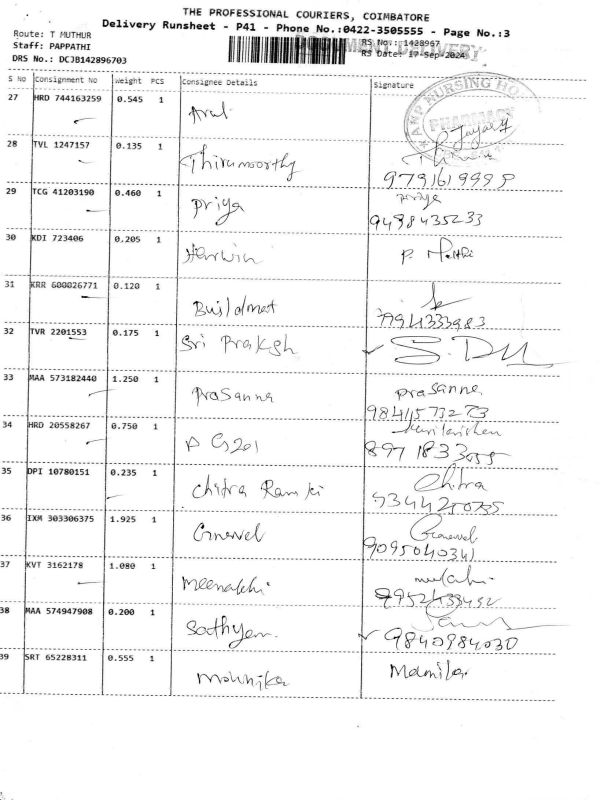 THE PROFESSIONAL COURIERS, COIMBATORE
Delivery Runsheet - P41 - Phone No.:0422-3505555 - Page No.:3
Route: T MUTHUR
DOCUMENT DELIVERY
RS No.: 1428967
Staff: PAPPATHI
RS Date: 17-Sep-2024
DRS No.: DCJB142896703
S No Consignment No Weight PCS Consignee Details Signature
27 HRD 744163259 0.545 1 Arul
NURSING HO
PHARMACY
28 TVL 1247157 0.135 1 Thirumoorthy
9791619999
29 TCG 41203190 0.460 1 Priya Priya
9498435233
30 KDI 723406 0.205 1 Harwin P.
31 KRR 600026771 0.120 1 Buildmat
7794333983
32 TVR 2201553 0.175 1 Sri Praksh
33 MAA 573182440 1.250 1 Prasanna Prasanna
9841573273
34 HRD 20558267 0.750 1
8971833055
35 DPI 10780151 0.235 1 Chitra Ramki Chitra
36 IXM 303306375 1.925 1 Gnavel Gnavel
9095040341
37 KVT 3162178 1.080 1 Meenakhi
38 MAA 574947908 0.200 1 Sathyam
9840984030
39 SRT 65228311 0.555 1 Mounika